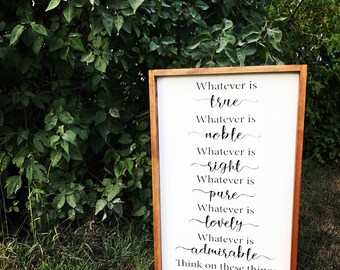 Whatever is
true
Whatever is
noble
Whatever is
right
Whatever is
pure
Whatever is
lovely
Whatever is
admirable
Think on these things